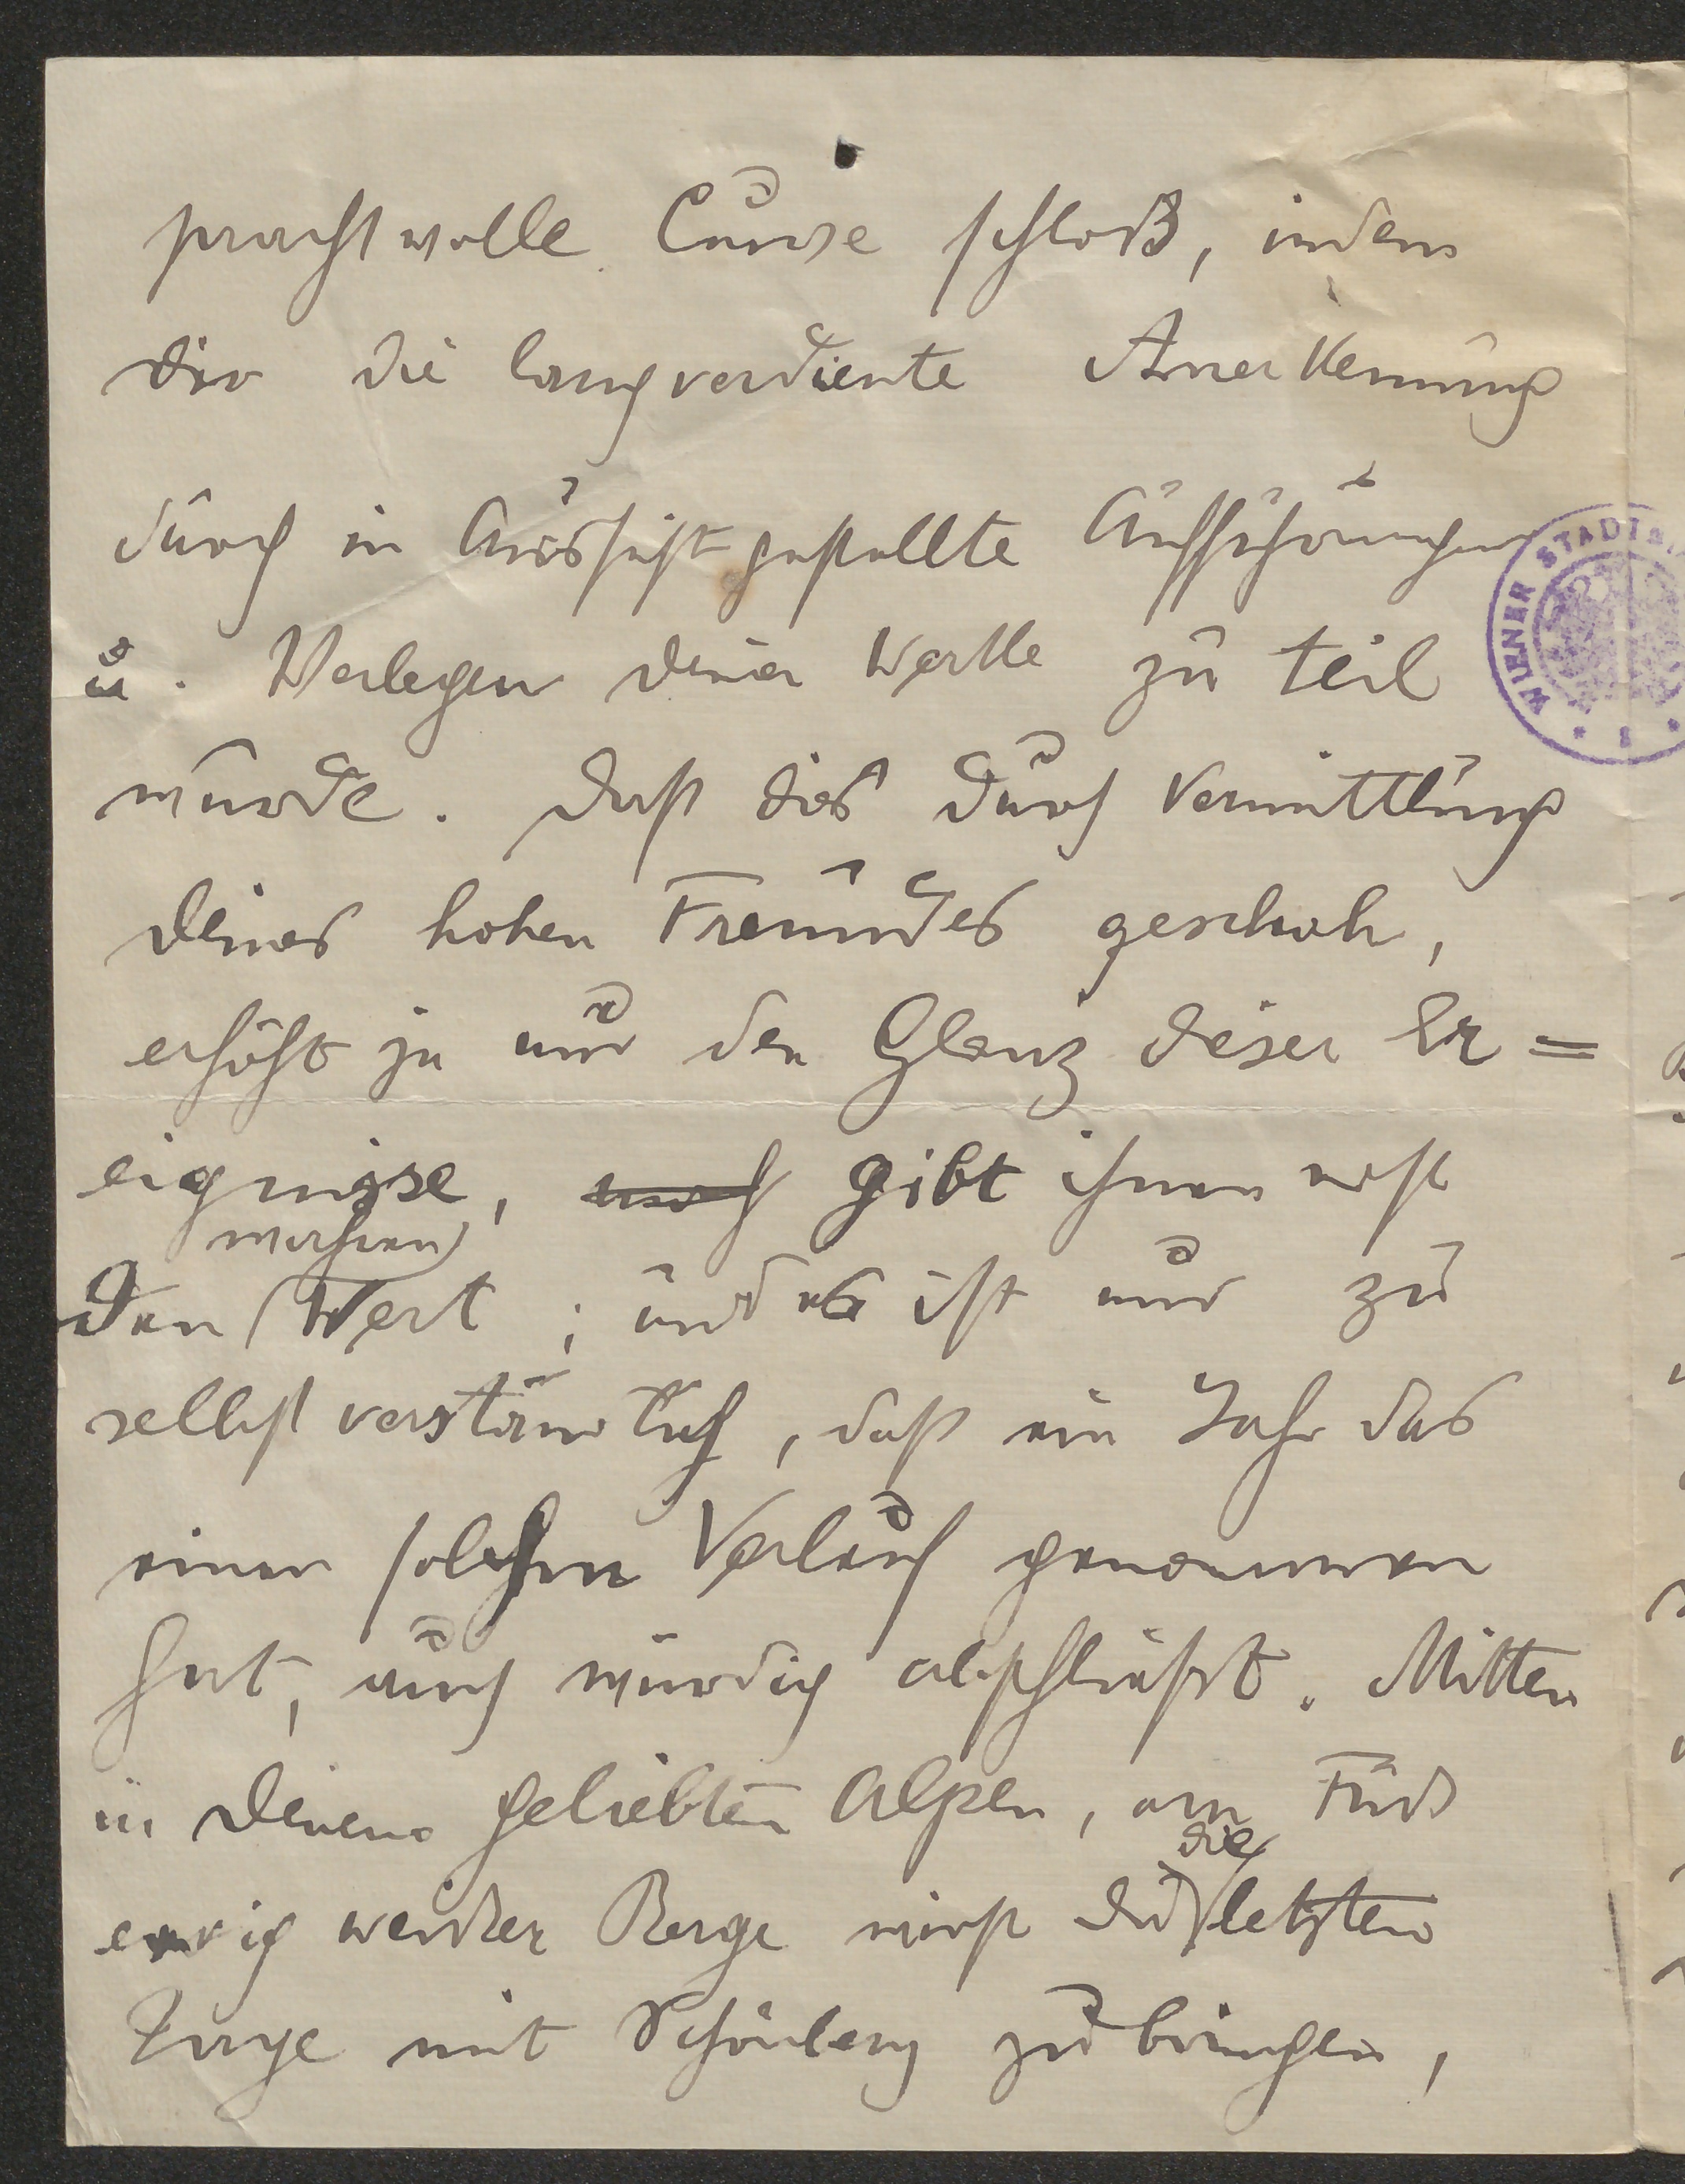 prachtvolle Curve schloß, indem
dir die langverdiente Anerkennung
durch in Aussicht gestellte Aufführungen
u. Verlegen deiner Werke zu teil
wurde. Dass dies durch Vermittlung
deines hohen Freundes geschah,
erhöht ja nur den Glanz dieser Er=
eignisse, gibt ihnen erst
wahren
den Wert; und es ist nur zu
selbstverständlich, dass ein Jahr das
einen solchen Verlauf genommen
hat, auch würdig abschließt. Mitten
in Deinen geliebten Alpen, am Fuß
die
ewig weißer Berge wirst du letzten
Tage mit Schönberg zubringen,
WIENER STADTB